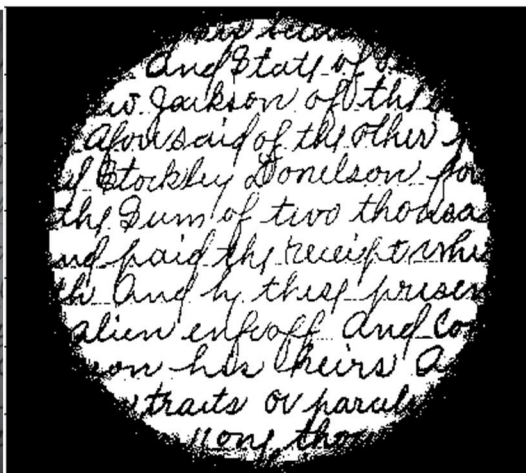 And State of
Jackson of the
Afousaid of the other
Stockley Donelson for
the Sum of two thousa
and paid the receipt whi
th And by these presen
alien enfeoff And Co
son his heirs A
traits or parcel
one thou